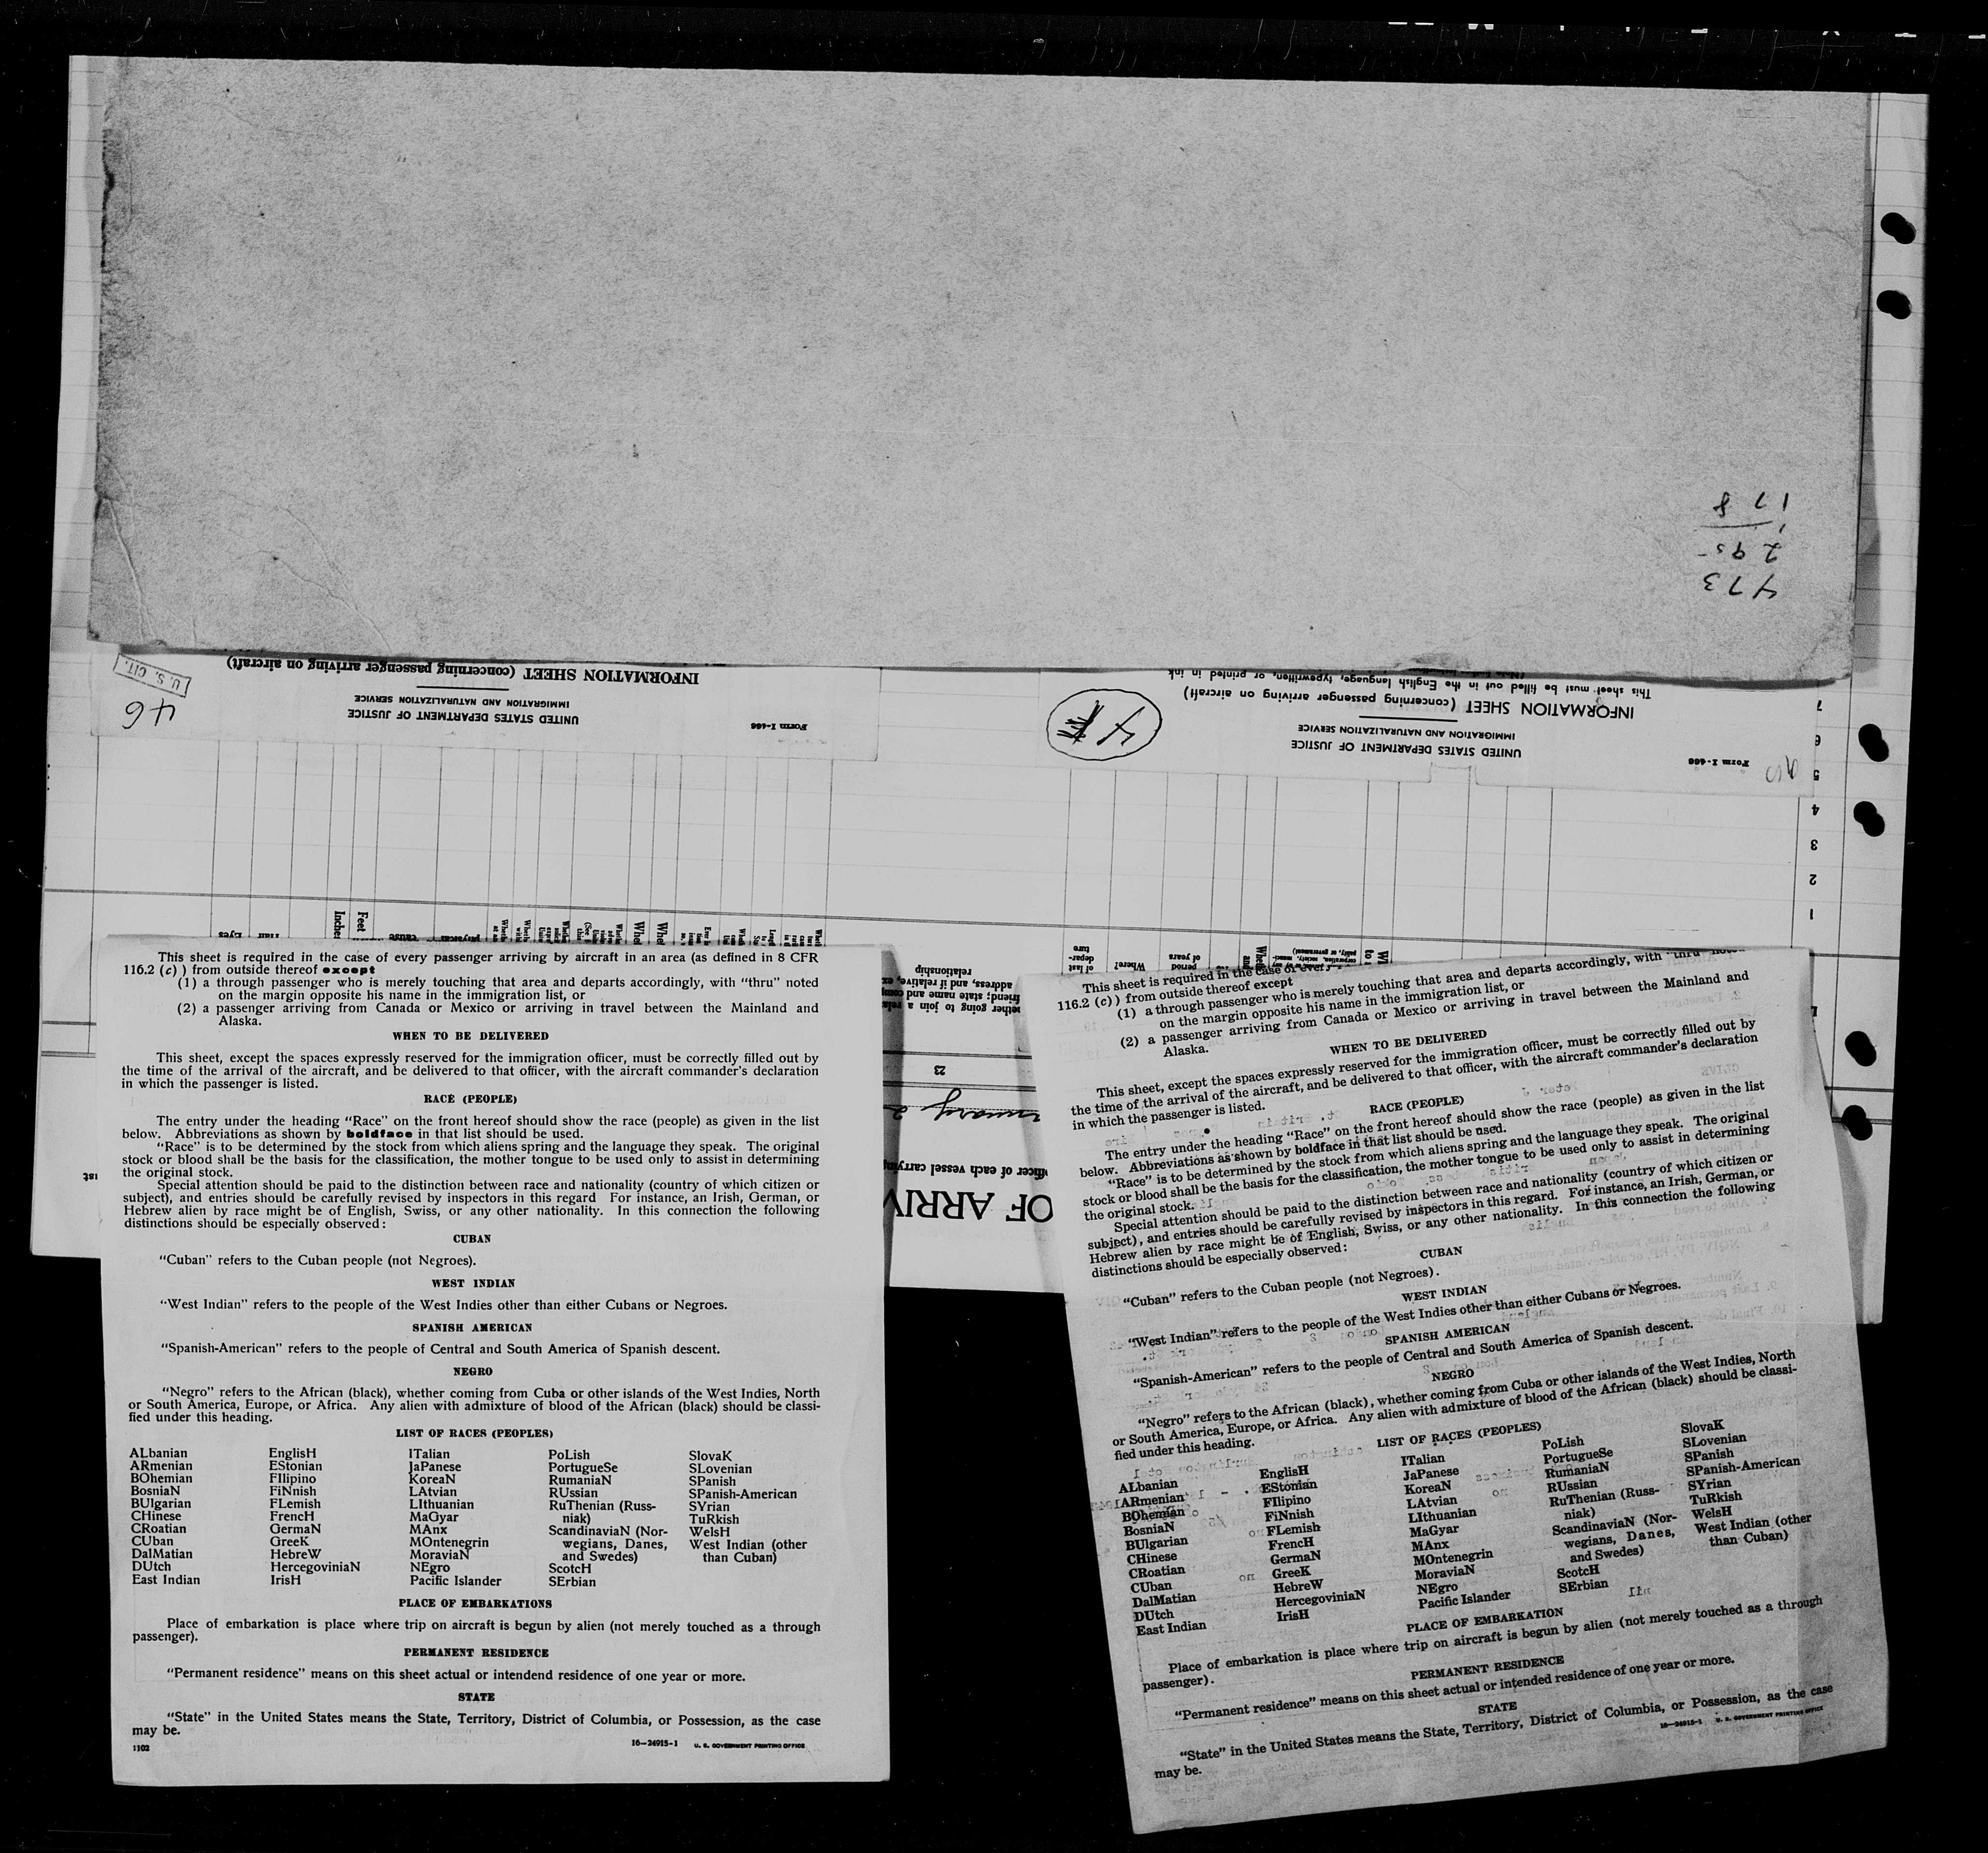 178
295
473
INFORMATION SHEET (concerning passenger arriving on aircraft)
IMMIGRATION AND NATURALIZATION SERVICE
UNITED STATES DEPARTMENT OF JUSTICE
Form I-466
U. S. CIT.
46
This sheet must be filled out in the English language, typewritten, or printed in ink
INFORMATION SHEET (concerning passenger arriving on aircraft)
IMMIGRATION AND NATURALIZATION SERVICE
UNITED STATES DEPARTMENT OF JUSTICE
Form I-466
4
7
6
5
4
3
2
1
Inches
Feet
cause
physical
Eyes
of last
depar-
ture
Where?
period
of years
relationship
address, and if relative, ex
friend; state name and com
ether going to join a rela
23
officer of each vessel carrying
OF ARRIV
This sheet is required in the case of every passenger arriving by aircraft in an area (as defined in 8 CFR
116.2 (c) ) from outside thereof except
(1) a through passenger who is merely touching that area and departs accordingly, with “thru” noted
on the margin opposite his name in the immigration list, or
(2) a passenger arriving from Canada or Mexico or arriving in travel between the Mainland and
Alaska.
WHEN TO BE DELIVERED
This sheet, except the spaces expressly reserved for the immigration officer, must be correctly filled out by
the time of the arrival of the aircraft, and be delivered to that officer, with the aircraft commander’s declaration
in which the passenger is listed.
RACE (PEOPLE)
The entry under the heading “Race” on the front hereof should show the race (people) as given in the list
below. Abbreviations as shown by boldface in that list should be used.
“Race” is to be determined by the stock from which aliens spring and the language they speak. The original
stock or blood shall be the basis for the classification, the mother tongue to be used only to assist in determining
the original stock.
Special attention should be paid to the distinction between race and nationality (country of which citizen or
subject), and entries should be carefully revised by inspectors in this regard For instance, an Irish, German, or
Hebrew alien by race might be of English, Swiss, or any other nationality. In this connection the following
distinctions should be especially observed:
CUBAN
“Cuban” refers to the Cuban people (not Negroes).
WEST INDIAN
“West Indian” refers to the people of the West Indies other than either Cubans or Negroes.
SPANISH AMERICAN
“Spanish-American” refers to the people of Central and South America of Spanish descent.
NEGRO
“Negro” refers to the African (black), whether coming from Cuba or other islands of the West Indies, North
or South America, Europe, or Africa. Any alien with admixture of blood of the African (black) should be classi-
fied under this heading.
LIST OF RACES (PEOPLES)
ALbanian
ARmenian
BOhemian
BosniaN
BUlgarian
CHinese
CRoatian
CUban
DalMatian
DUtch
East Indian
EnglisH
EStonian
FIlipino
FiNnish
FLemish
FrencH
GermaN
GreeK
HebreW
HercegoviniaN
IrisH
ITalian
JaPanese
KoreaN
LAtvian
LIthuanian
MaGyar
MAnx
MOntenegrin
MoraviaN
NEgro
Pacific Islander
PoLish
PortugueSe
RumaniaN
RUssian
RuThenian (Russ-
niak)
ScandinaviaN (Nor-
wegians, Danes,
and Swedes)
ScotcH
SErbian
SlovaK
SLovenian
SPanish
SPanish-American
SYrian
TuRkish
WelsH
West Indian (other
than Cuban)
PLACE OF EMBARKATIONS
Place of embarkation is place where trip on aircraft is begun by alien (not merely touched as a through
passenger).
PERMANENT RESIDENCE
“Permanent residence” means on this sheet actual or intendend residence of one year or more.
STATE
“State” in the United States means the State, Territory, District of Columbia, or Possession, as the case
may be.
1102 16—24915-1 U. S. GOVERNMENT PRINTING OFFICE
This sheet is required in the case of ever
116.2 (c) ) from outside thereof except
(1) a through passenger who is merely touching that area and departs accordingly, with “thru” noted
on the margin opposite his name in the immigration list, or
(2) a passenger arriving from Canada or Mexico or arriving in travel between the Mainland and
Alaska.
WHEN TO BE DELIVERED
This sheet, except the spaces expressly reserved for the immigration officer, must be correctly filled out by
the time of the arrival of the aircraft, and be delivered to that officer, with the aircraft commander’s declaration
in which the passenger is listed.
RACE (PEOPLE)
The entry under the heading “Race” on the front hereof should show the race (people) as given in the list
below. Abbreviations as shown by boldface in that list should be used.
“Race” is to be determined by the stock from which aliens spring and the language they speak. The original
stock or blood shall be the basis for the classification, the mother tongue to be used only to assist in determining
the original stock.
Special attention should be paid to the distinction between race and nationality (country of which citizen or
subject), and entries should be carefully revised by inspectors in this regard. For instance, an Irish, German, or
Hebrew alien by race might be of English, Swiss, or any other nationality. In this connection the following
distinctions should be especially observed:
CUBAN
“Cuban” refers to the Cuban people (not Negroes).
WEST INDIAN
“West Indian” refers to the people of the West Indies other than either Cubans or Negroes.
SPANISH AMERICAN
“Spanish-American” refers to the people of Central and South America of Spanish descent.
NEGRO
“Negro” refers to the African (black), whether coming from Cuba or other islands of the West Indies, North
or South America, Europe, or Africa. Any alien with admixture of blood of the African (black) should be classi-
fied under this heading.
LIST OF RACES (PEOPLES)
ALbanian
ARmenian
BOhemian
BosniaN
BUlgarian
CHinese
CRoatian
CUban
DalMatian
DUtch
East Indian
EnglisH
EStonian
FIlipino
FiNnish
FLemish
FrencH
GermaN
GreeK
HebreW
HercegoviniaN
IrisH
ITalian
JaPanese
KoreaN
LAtvian
LIthuanian
MaGyar
MAnx
MOntenegrin
MoraviaN
NEgro
Pacific Islander
PoLish
PortugueSe
RumaniaN
RUssian
RuThenian (Russ-
niak)
ScandinaviaN (Nor-
wegians, Danes,
and Swedes)
ScotcH
SErbian
SlovaK
SLovenian
SPanish
SPanish-American
SYrian
TuRkish
WelsH
West Indian (other
than Cuban)
PLACE OF EMBARKATION
Place of embarkation is place where trip on aircraft is begun by alien (not merely touched as a through
passenger).
PERMANENT RESIDENCE
“Permanent residence” means on this sheet actual or intended residence of one year or more.
STATE
“State” in the United States means the State, Territory, District of Columbia, or Possession, as the case
may be.
16—24915-1 U. S. GOVERNMENT PRINTING OFFICE